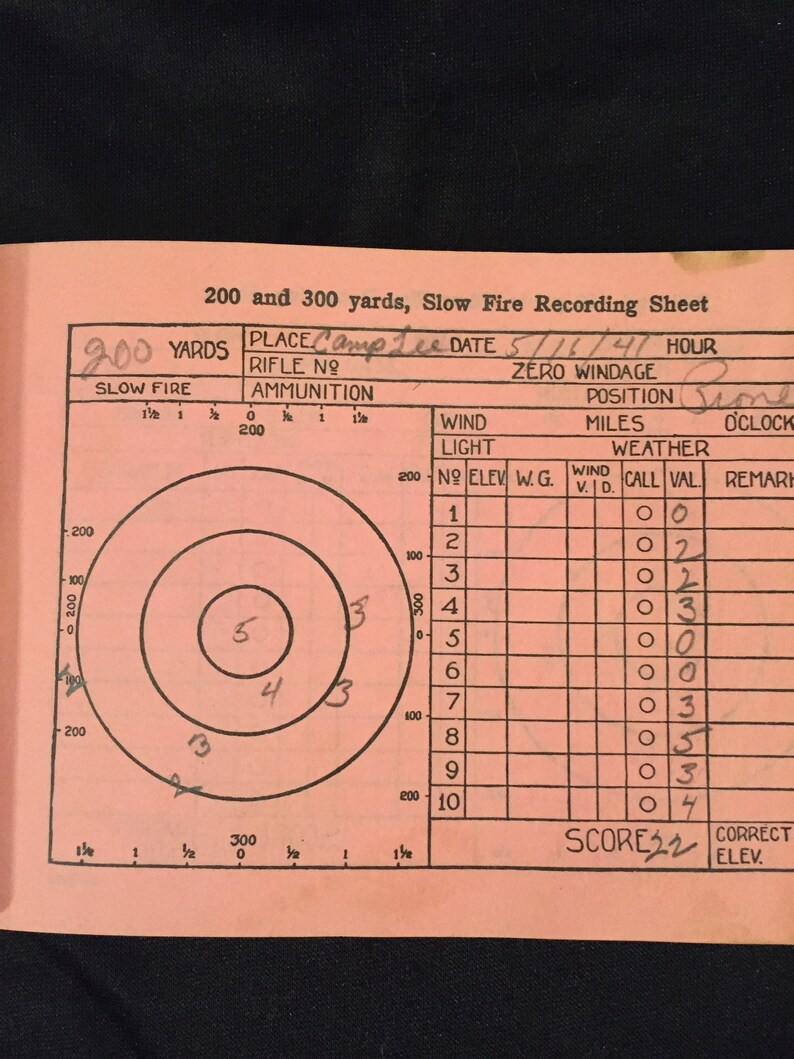 200 and 300 yards, Slow Fire Recording Sheet
200 YARDS PLACE Camp Lee DATE 5/16/41 HOUR
RIFLE Nº ZERO WINDAGE
SLOW FIRE AMMUNITION POSITION Prone
1½ 1 ½ 0 ½ 1 1½
200
WIND MILES O'CLOCK
LIGHT WEATHER
Nº ELEV. W. G. WIND V. D. CALL VAL. REMARK
200
1 O 0
200
2 O 2
100
100
3 O 2
200 300
4 O 3
3
0 0
5
5 O 0
6 O 0
100
2
4 3
7 O 3
100
200
8 O 5
3
9 O 3
2
200
10 O 4
SCORE 22 CORRECT
ELEV.
300
1½ 1 ½ 0 ½ 1 1½